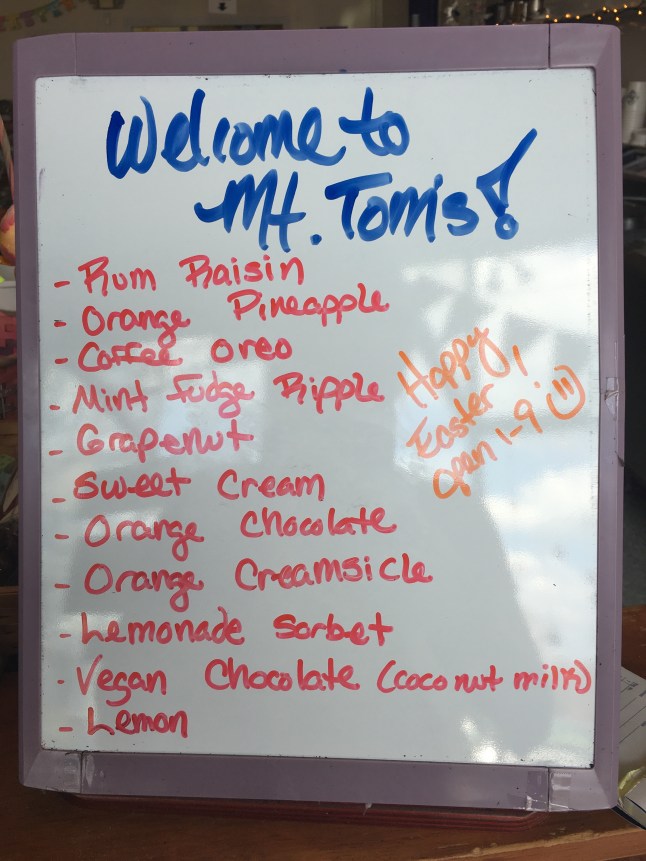 Welcome to
Mt. Tom's!
- Rum Raisin
- Orange Pineapple
- Coffee Oreo
- Mint Fudge Ripple
- Grapenut
- Sweet Cream
- Orange Chocolate
- Orange Creamsicle
- Lemonade Sorbet
- Vegan Chocolate (coconut milk)
- Lemon
Happy
Easter!
Open 1-9